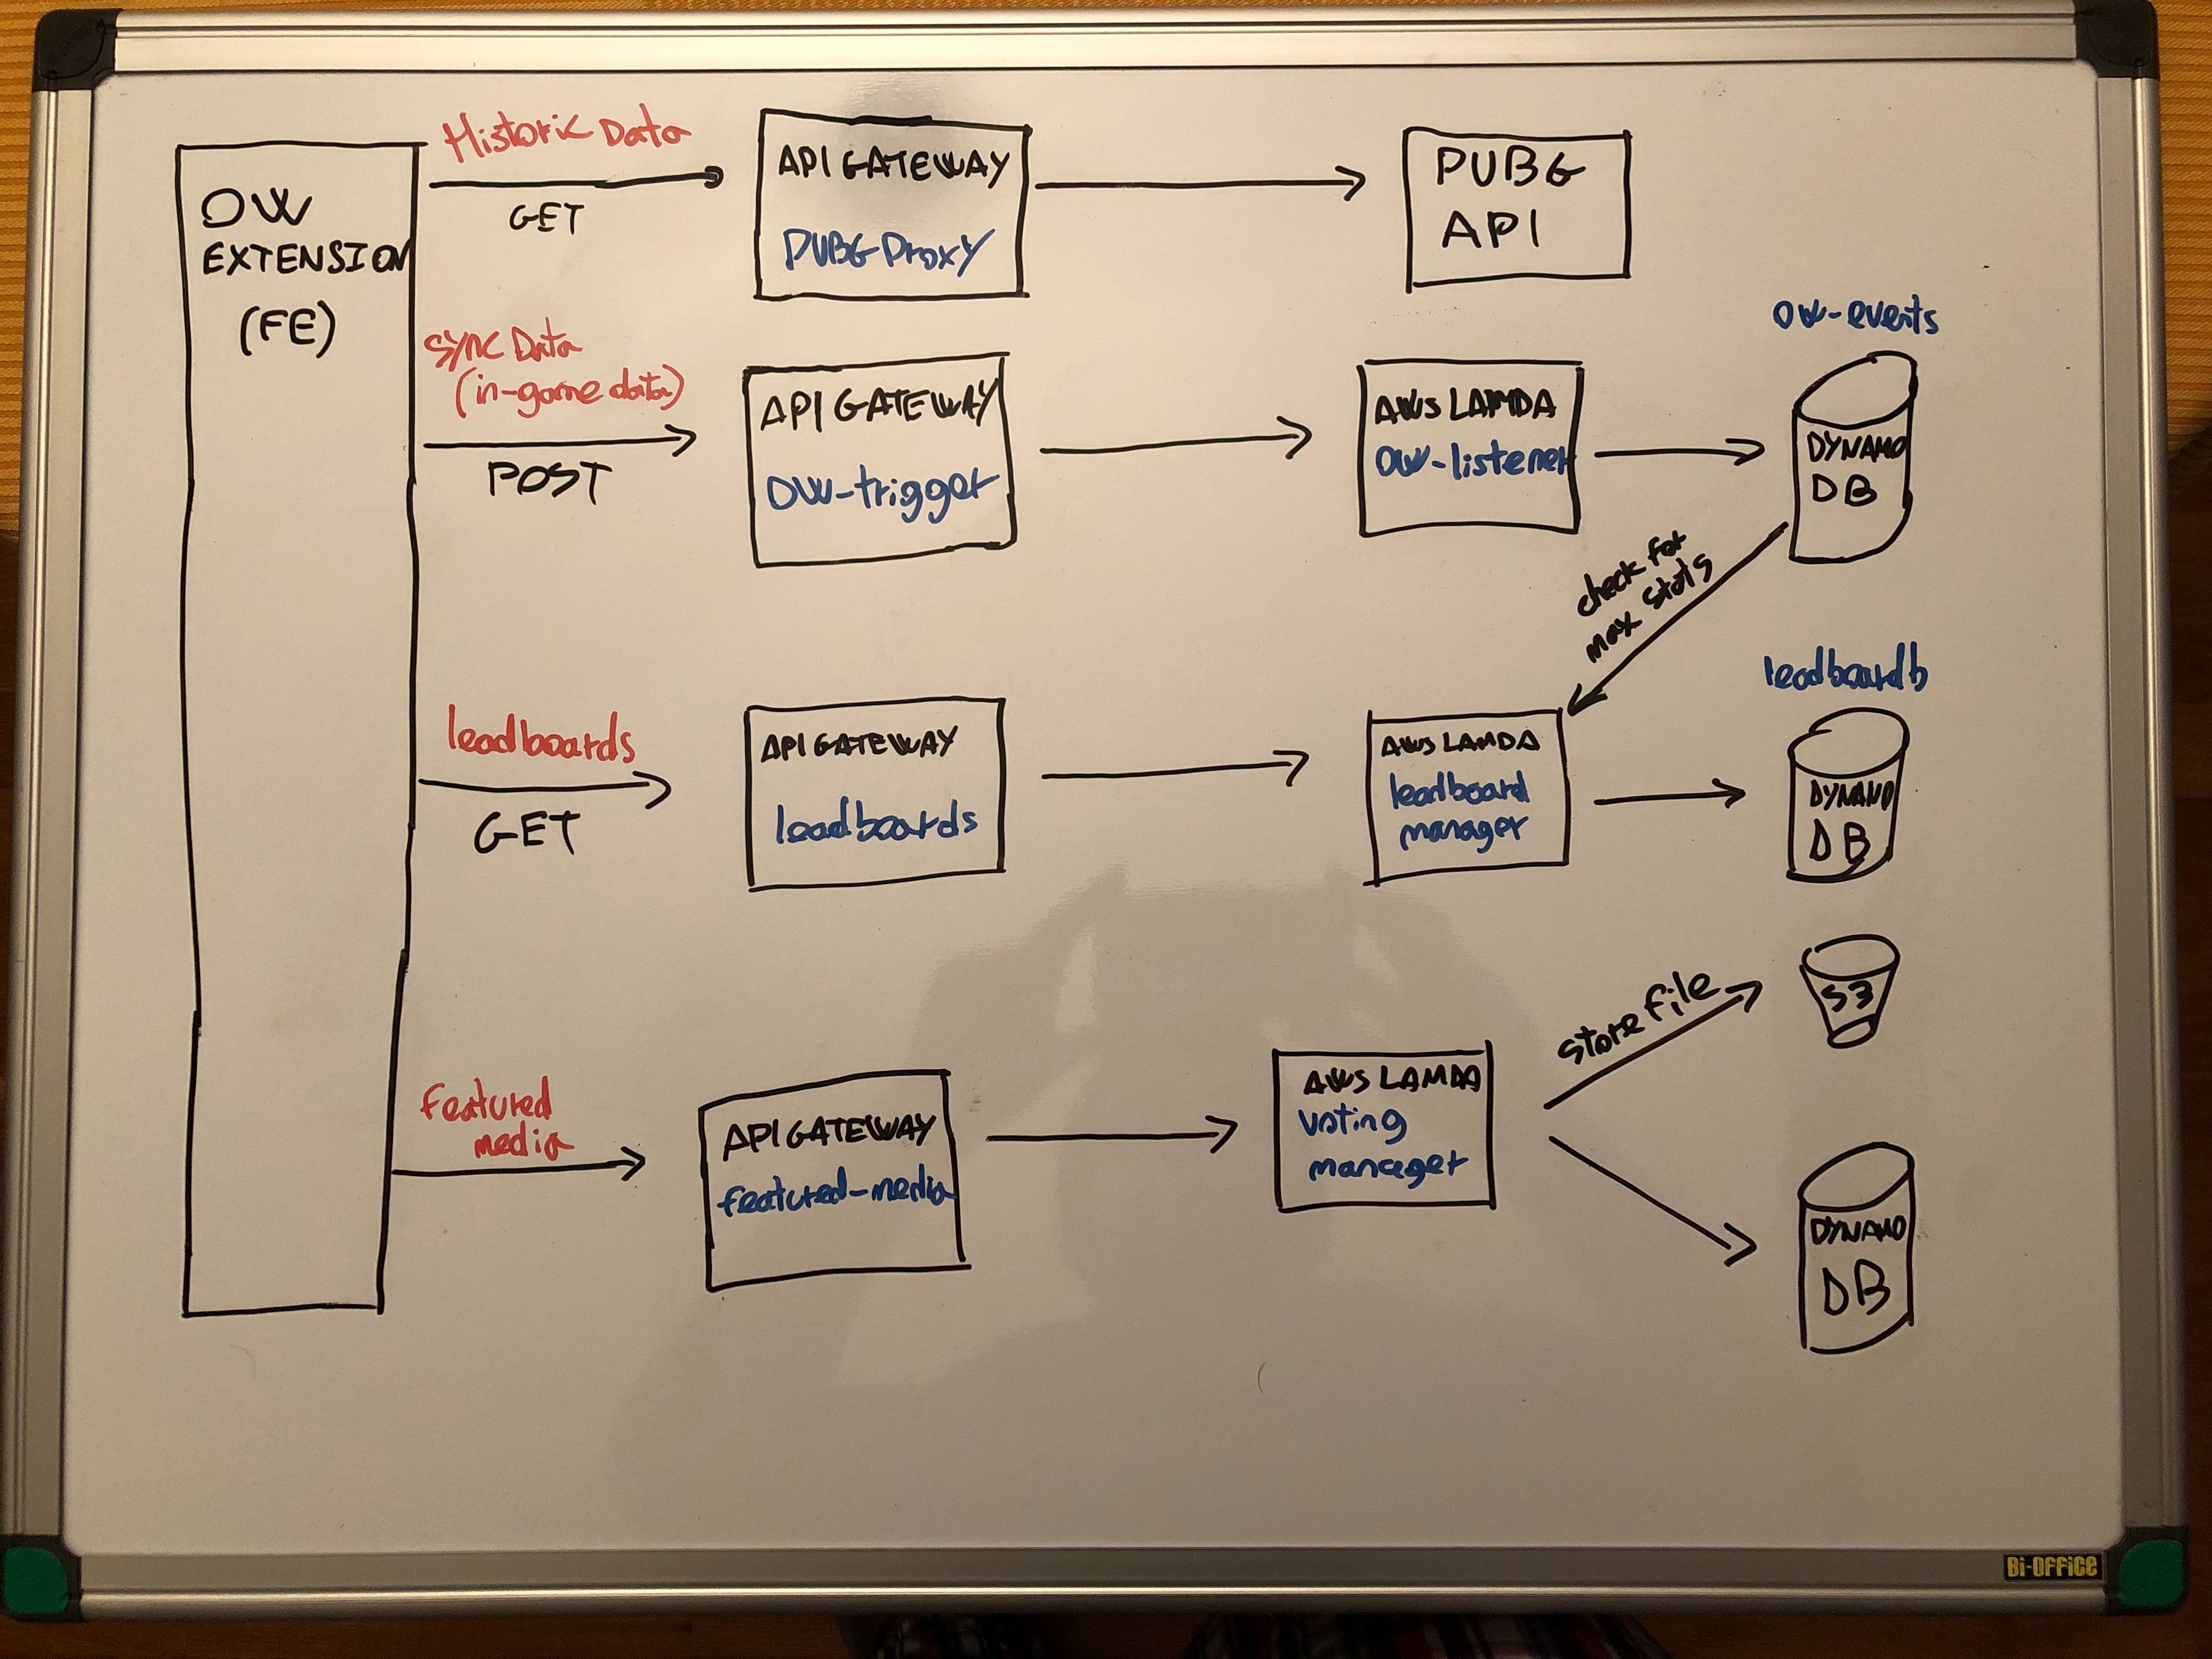 OW
EXTENSION
(FE)
Historic Data
GET
API GATEWAY
PUBG Proxy
PUBG
API
sync Data
(in-game data)
POST
API GATEWAY
OW-trigger
AWS LAMDA
OW-listener
ow-events
DYNAMO
DB
check for
max stats
leadboards
GET
API GATEWAY
leadboards
AWS LAMDA
leadboard
manager
leadboardb
DYNAMO
DB
featured
media
API GATEWAY
featured-media
AWS LAMDA
voting
manager
store file
S3
DYNAMO
DB
Bi-OFFiCE